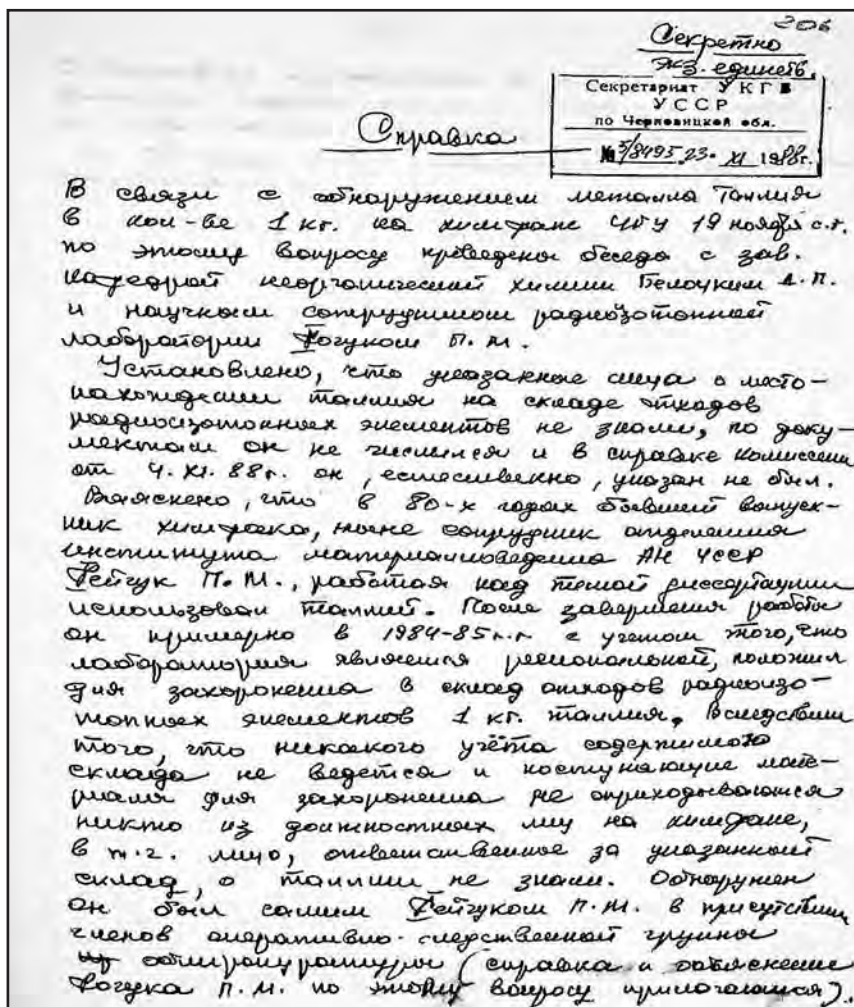 206
Секретно
экз. единств.
Секретариат УКГБ
УССР
по Черновицкой обл.
№ 5/8495 23. XI 1988г.
Справка
В связи с обнаружением металла Таллия
в кол-ве 1 кг. на химфаке ЧГУ 19 ноября с.г.
по этому вопросу проведены беседы с зав.
кафедрой неорганической химии Белоцким Д.П.
и научным сотрудником радиоизотопной
лаборатории Фочуком П.М.
Установлено, что указанные лица о место-
нахождении таллия на складе отходов
радиоизотопных элементов не знали, по доку-
ментам он не числился и в справке комиссии
от 4.XI.88г. он, естественно, указан не был.
Выяснено, что в 80-х годах бывший выпуск-
ник химфака, ныне сотрудник отделения
института материаловедения АН УССР
Фейчук П.М., работая над темой диссертации
использовал таллий. После завершения работы
он примерно в 1984-85г.г. с учетом того, что
лаборатория является региональной, положил
для захоронения в склад отходов радиоизо-
топных элементов 1 кг. таллия. Вследствии
того, что никакого учёта содержимого
склада не ведется и поступающие мате-
риалы для захоронения не оприходываются
никто из должностных лиц на химфаке,
в т.ч. лицо, ответственное за указанный
склад, о таллии не знали. Обнаружен
он был самим Фейчуком П.М. в присутствии
членов оперативно-следственной группы
облпрокуратуры (справка и объяснение
Фочука П.М. по этому вопросу прилагаются).